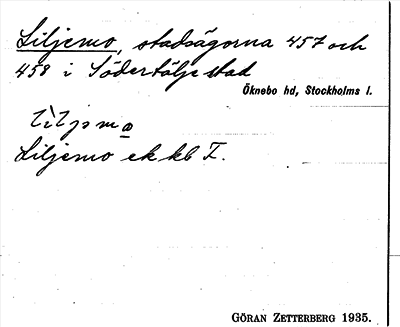 Liljemo, stadsägorna 457 och
458 i Södertälje stad
Öknebo hd, Stockholms l.
Liljemo ek kb T.
GÖRAN ZETTERBERG 1935.